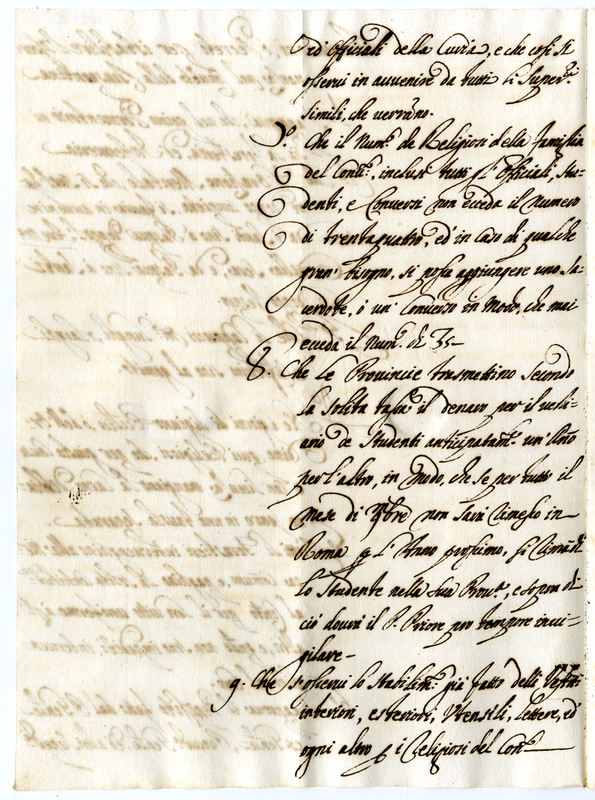 ed' Officiali della Curia, e che cosi si
osservi in avvenire da tutti li Super.ri
simili, che verrano.
7.º Che il Num.º de Religiosi della famiglia
del Conv.to, inclusi tutti gl'Officiali, Stu-
denti, e Conversi non ecceda il Numero
di trentaquattro, ed' in caso di qualche
gran' bisogno, si possa aggiungere uno Sa-
cerdote, ó un' Converso in Modo, che mai
ecceda il Num.º di 35-
8. Che le Provincie trasmettino secondo
la solita tassa il denaro per il vesti-
ario de Studenti anticipatam.te un' Año
per l'altro, in Modo, che se per tutto il
Mese di non sarà rimesso in
Roma p l'Anno prossimo, si rimandi
lo Studente nella sua Prov.a, e sopra di
ciò dovrà il P. Priore pro tempore invi-
gilare-
9. Che s'osservi lo Stabilim.to già fatto delli Vestiti
interiori, esteriori, Utensili, lettere, ed'
ogni altro p i Religiosi del Conv.to